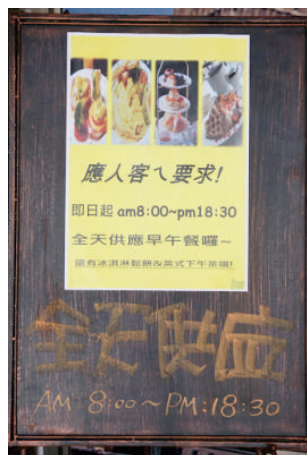 應人客ㄟ要求!
即日起 am8:00~pm18:30
全天供應早午餐囉~
還有冰淇淋鬆餅&英式下午茶喔!
全天供应
AM 8:00~PM:18:30